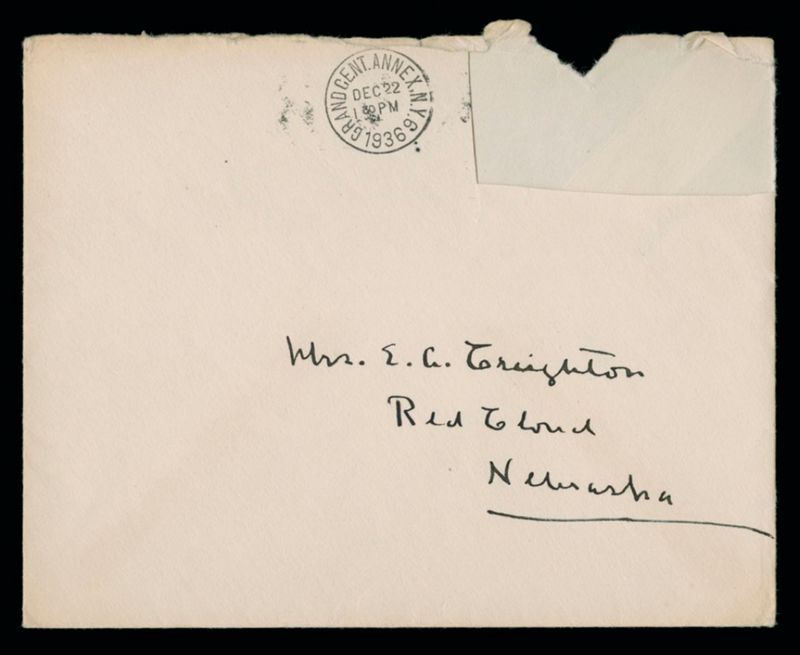 GRAND CENT. ANNEX. N.Y. 9
DEC 22
PM
1936
Mrs. E. A. Creighton
Red Cloud
Nebraska